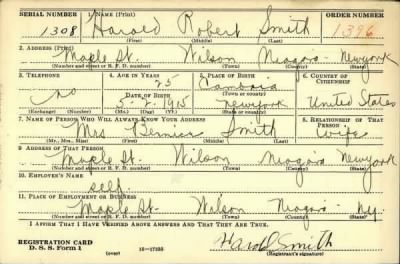 SERIAL NUMBER 1. NAME (Print) ORDER NUMBER
1308 Harold Robert Smith 1396
(First) (Middle) (Last)
2. ADDRESS (Print)
Maple St. Wilson Niagara New york
(Number and street or R. F. D. number) (Town) (County) (State)
3. TELEPHONE 4. AGE IN YEARS 5. PLACE OF BIRTH 6. COUNTRY OF CITIZENSHIP
25 Cambria
no DATE OF BIRTH (Town or county) United States
5-2-1915 new york
(Exchange) (Number) (Mo.) (Day) (Yr.) (State or country)
7. NAME OF PERSON WHO WILL ALWAYS KNOW YOUR ADDRESS 8. RELATIONSHIP OF THAT PERSON
Mrs Smith Wife
(Mr., Mrs., Miss) (First) (Middle) (Last)
9. ADDRESS OF THAT PERSON
Maple St. Wilson Niagara New york
(Number and street or R. F. D. number) (Town) (County) (State)
10. EMPLOYER'S NAME
self.
11. PLACE OF EMPLOYMENT OR BUSINESS
Maple St. Wilson Niagara ny
(Number and street or R. F. D. number) (Town) (County) (State)
I AFFIRM THAT I HAVE VERIFIED ABOVE ANSWERS AND THAT THEY ARE TRUE.
REGISTRATION CARD
D. S. S. Form 1 (over) Harold Smith
(Registrant's signature)